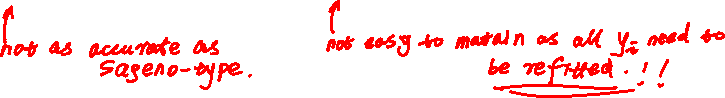 not as accurate as
Sageno-type.
not easy to matain as all yi need to
be refitted.!!